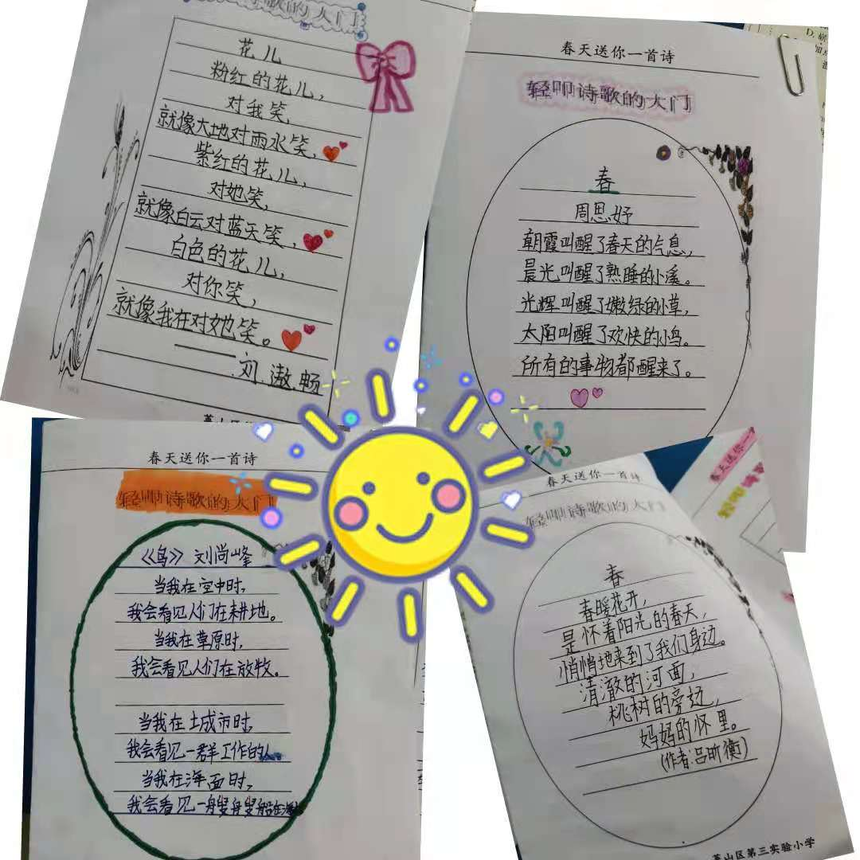 诗歌的大门
花儿
粉红的花儿，
对我笑，
就像大地对雨水笑，
紫红的花儿，
对她笑，
就像白云对蓝天笑，
白色的花儿，
对你笑，
就像我在对她笑。
——刘遨畅
春天送你一首诗
轻叩诗歌的大门
春
周思妤
朝霞叫醒了春天的气息，
晨光叫醒了熟睡的小溪。
光辉叫醒了嫩绿的小草，
太阳叫醒了欢快的小鸟。
所有的事物都醒来了。
春天送你一首诗
轻叩诗歌的大门
《鸟》 刘尚峰
当我在空中时，
我会看见人们在耕地。
当我在草原时，
我会看见人们在放牧。
当我在土成市时，
我会看见一群工作的人
当我在海面时，
我会看见一艘艘船在
春天送你一首诗
轻叩诗歌的大门
春
春暖花开，
是怀着阳光的春天，
悄悄地来到了我们身边。
清澈的河面，
桃树的旁边，
妈妈的怀里。
(作者:吕昕衡)
山区第三实验小学
春天送你一